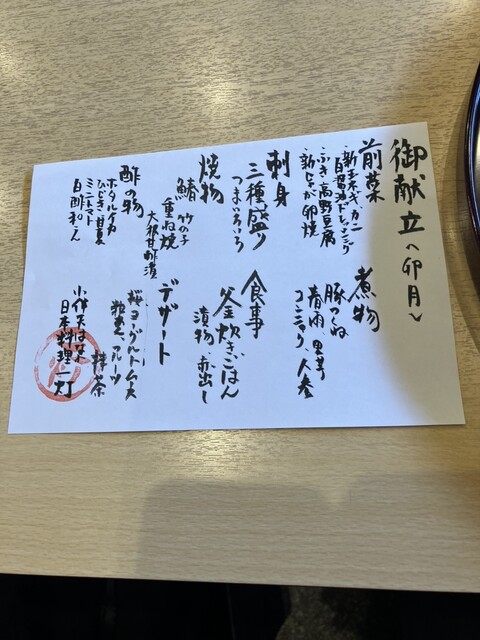 御献立〈卯月〉
前菜
新玉ネギ、カニ
自醤油ドレッシング
ふき、高野豆腐
新じゃが卵焼
刺身
三種盛り
つまいろいろ
焼物
鰆 竹の子
重ね焼
大根甘酢漬
酢の物
ホタルイカ
ひじき、甘夏
ミニトマト
白酢和え
煮物
豚つくね
春雨、里芋
コンニャク、人参
食事
釜炊きごはん
漬物、赤出し
デザート
桜ヨーグルトムース
粒更、フルーツ
抹茶
日本料理一灯